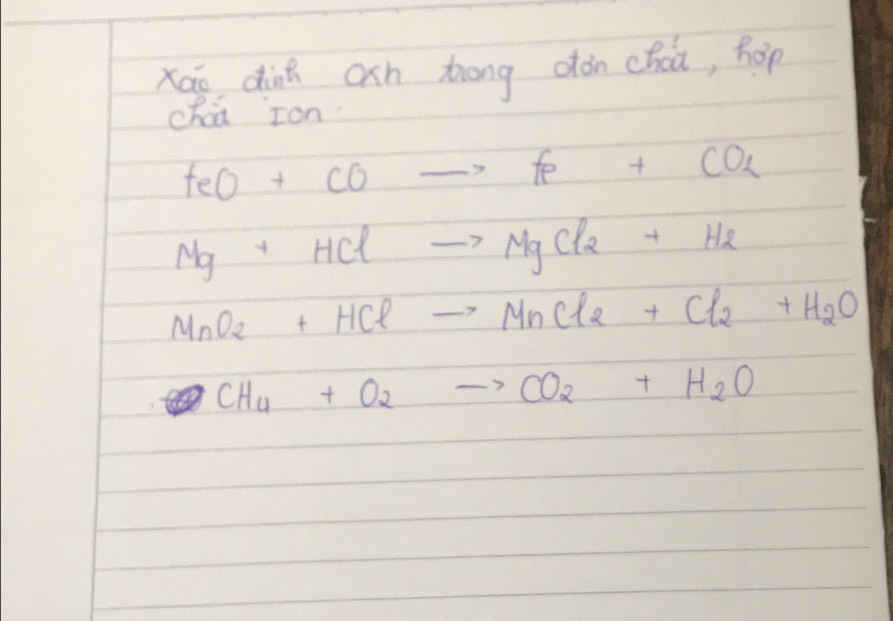 Xác định oxh trong đơn chất, hợp
chất ion.
FeO + CO → Fe + CO₂
Mg + HCl → MgCl₂ + H₂
MnO₂ + HCl → MnCl₂ + Cl₂ + H₂O
CH₄ + O₂ → CO₂ + H₂O